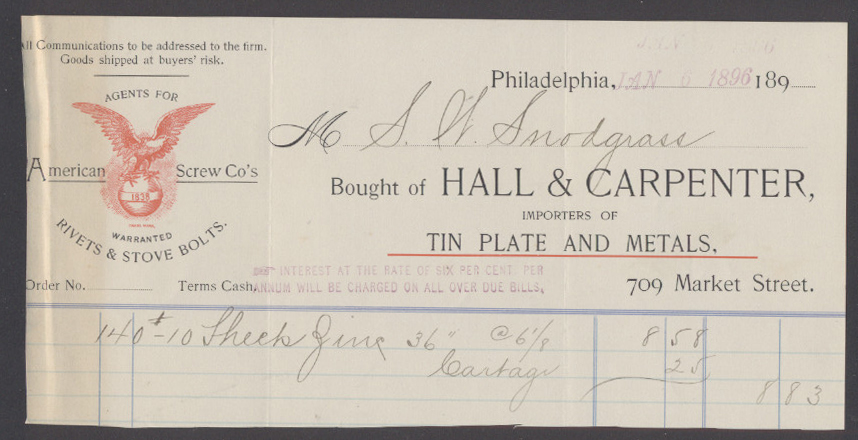 All Communications to be addressed to the firm.
Goods shipped at buyers' risk.
AGENTS FOR
American Screw Co's
1838
WARRANTED
RIVETS & STOVE BOLTS.
Philadelphia, JAN 6 1896 189
M S. W. Snodgrass
Bought of HALL & CARPENTER,
IMPORTERS OF
TIN PLATE AND METALS,
709 Market Street.
Order No. Terms Cash,
INTEREST AT THE RATE OF SIX PER CENT. PER
ANNUM WILL BE CHARGED ON ALL OVER DUE BILLS.
140# - 10 Sheets Zinc 36" @ 6 1/8 8 58
Cartage 25
8 83